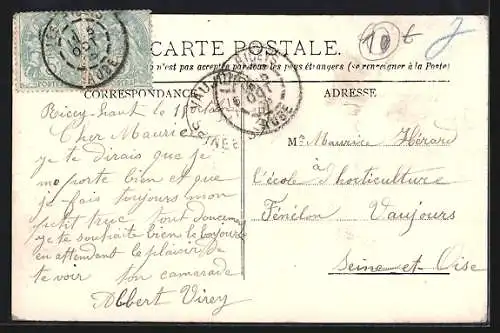 CARTE POSTALE.
n'est pas accepté par tous les pays étrangers (se renseigner à la Poste)
CORRESPONDANCE
ADRESSE
10 €
Ricey-haut le 18
Cher Maurice
je te dirais que je
me porte bien et que
je fais toujours mon
petit truc tout doucement
je te souhaite bien le bonjour
en attendant le plaisir de
te voir ton camarade
Albert Virey
Mr Maurice Hérard
à
l'école d'horticulture
Fénélon Vaujours
Seine et Oise
AUBE